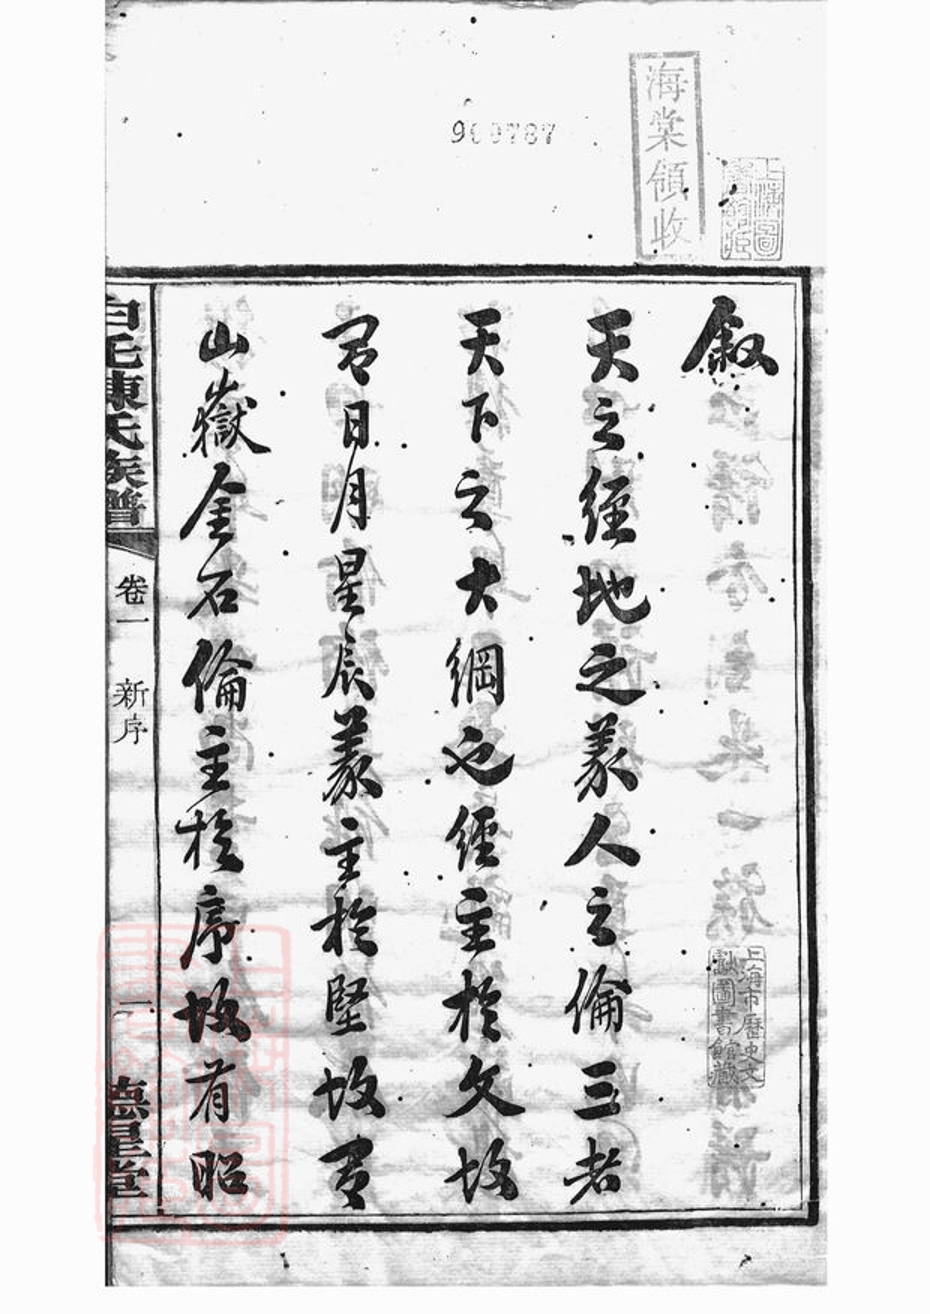 海棠領收
909787
上海圖書館藏
敘
天之經地之義人之倫三者
天下之大綱也經主於文故
有日月星辰義主於堅故有
山嶽金石倫主於序故有昭
上海市歷史文獻圖書館藏
白毛陳氏族譜
卷一 新序
一
德星堂